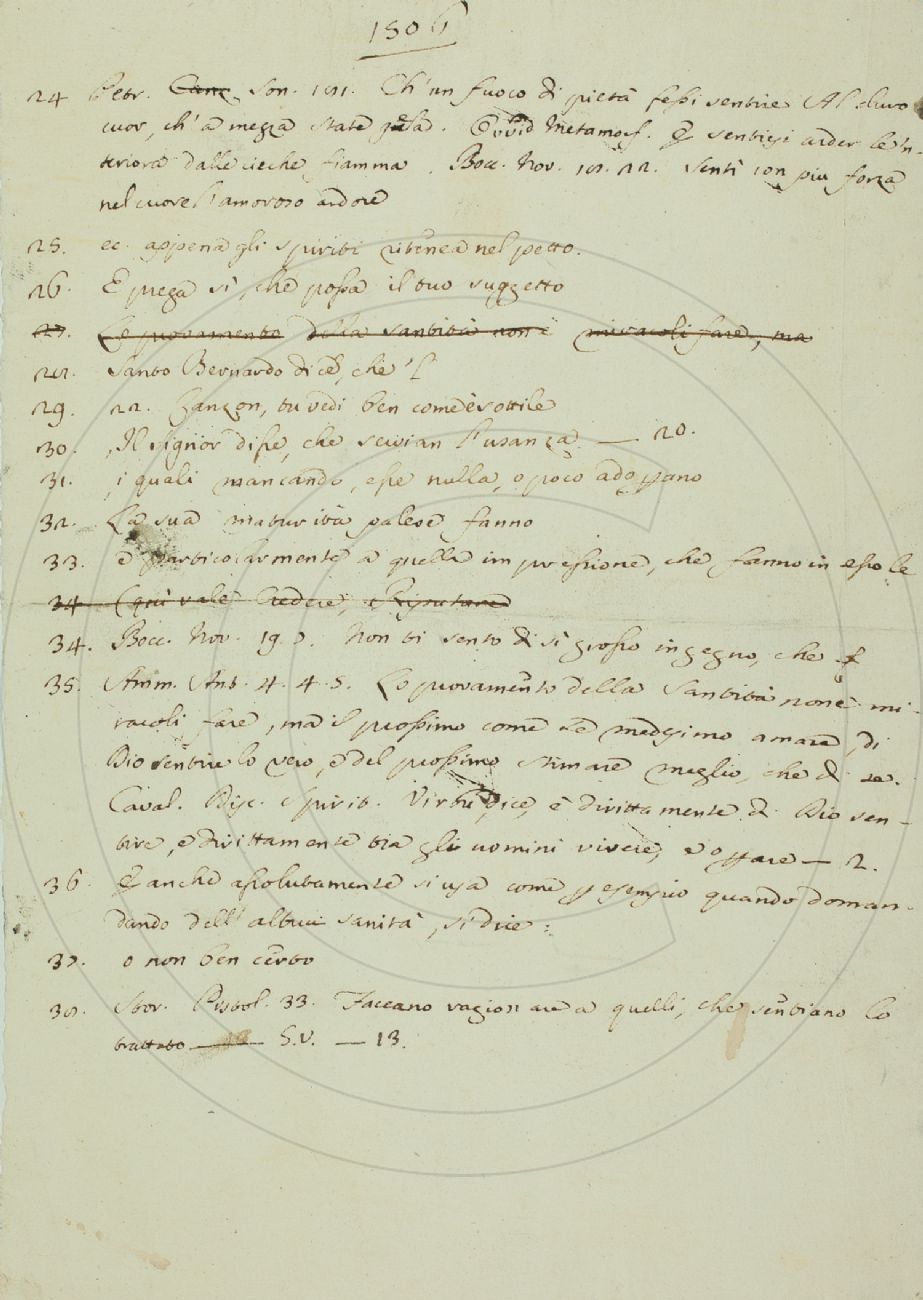 1506
24 Petr. Canz. Son. 191. Ch'un fuoco di pietà fessi sentire Al duro
cuor, ch'a mezza state gela. Ovvid Metamof. E sentissi arder le 'n-
teriora dalle cieche fiamma. Bocc. Nov. 101. 22. Sentì con più forza
nel cuore l'amoroso ardore
25. ec. appena gli spiriti ritenea nel petto.
26. E prega sì, che possa il tuo suggetto
27. Lo provamento della santità non è miracoli fare, ma
28. Santo Bernardo dice, che 'l
29. 22. Canzon, tu vedi ben com'è sottile
30. , Il Signor disse, che servian l'usanza — 20.
31. , i quali mancando, esse nulla, o poco adoprano
32. La sua maturità palese fanno
33. e particolarmente a quella impressione, che fanno in esso le
34 (qui vale Credere, e Riputare
34. Bocc. Nov. 19. 9. Non ti sento di sì grosso ingegno, che
35. Amm. Ant. 4. 4. 5. Lo provamento della Santità non è mi-
racoli fare, ma il prossimo come se medesimo amare, di
Dio sentire lo vero, e del prossimo stimare meglio, che di se.
Caval. Disc. Spirit. Virtù, dice, è dirittamente di Dio sen-
tire, e dirittamente tra gli uomini vivere, e oprare — 2.
36. E anche assolutamente si usa come p esempio quando doman-
dando dell'altrui sanità, si dice:
37. o non ben certo
38. Stor. Pistol. 33. Faccano ragionare a quelli, che sentiano lo
trattato — S.V. — 13.